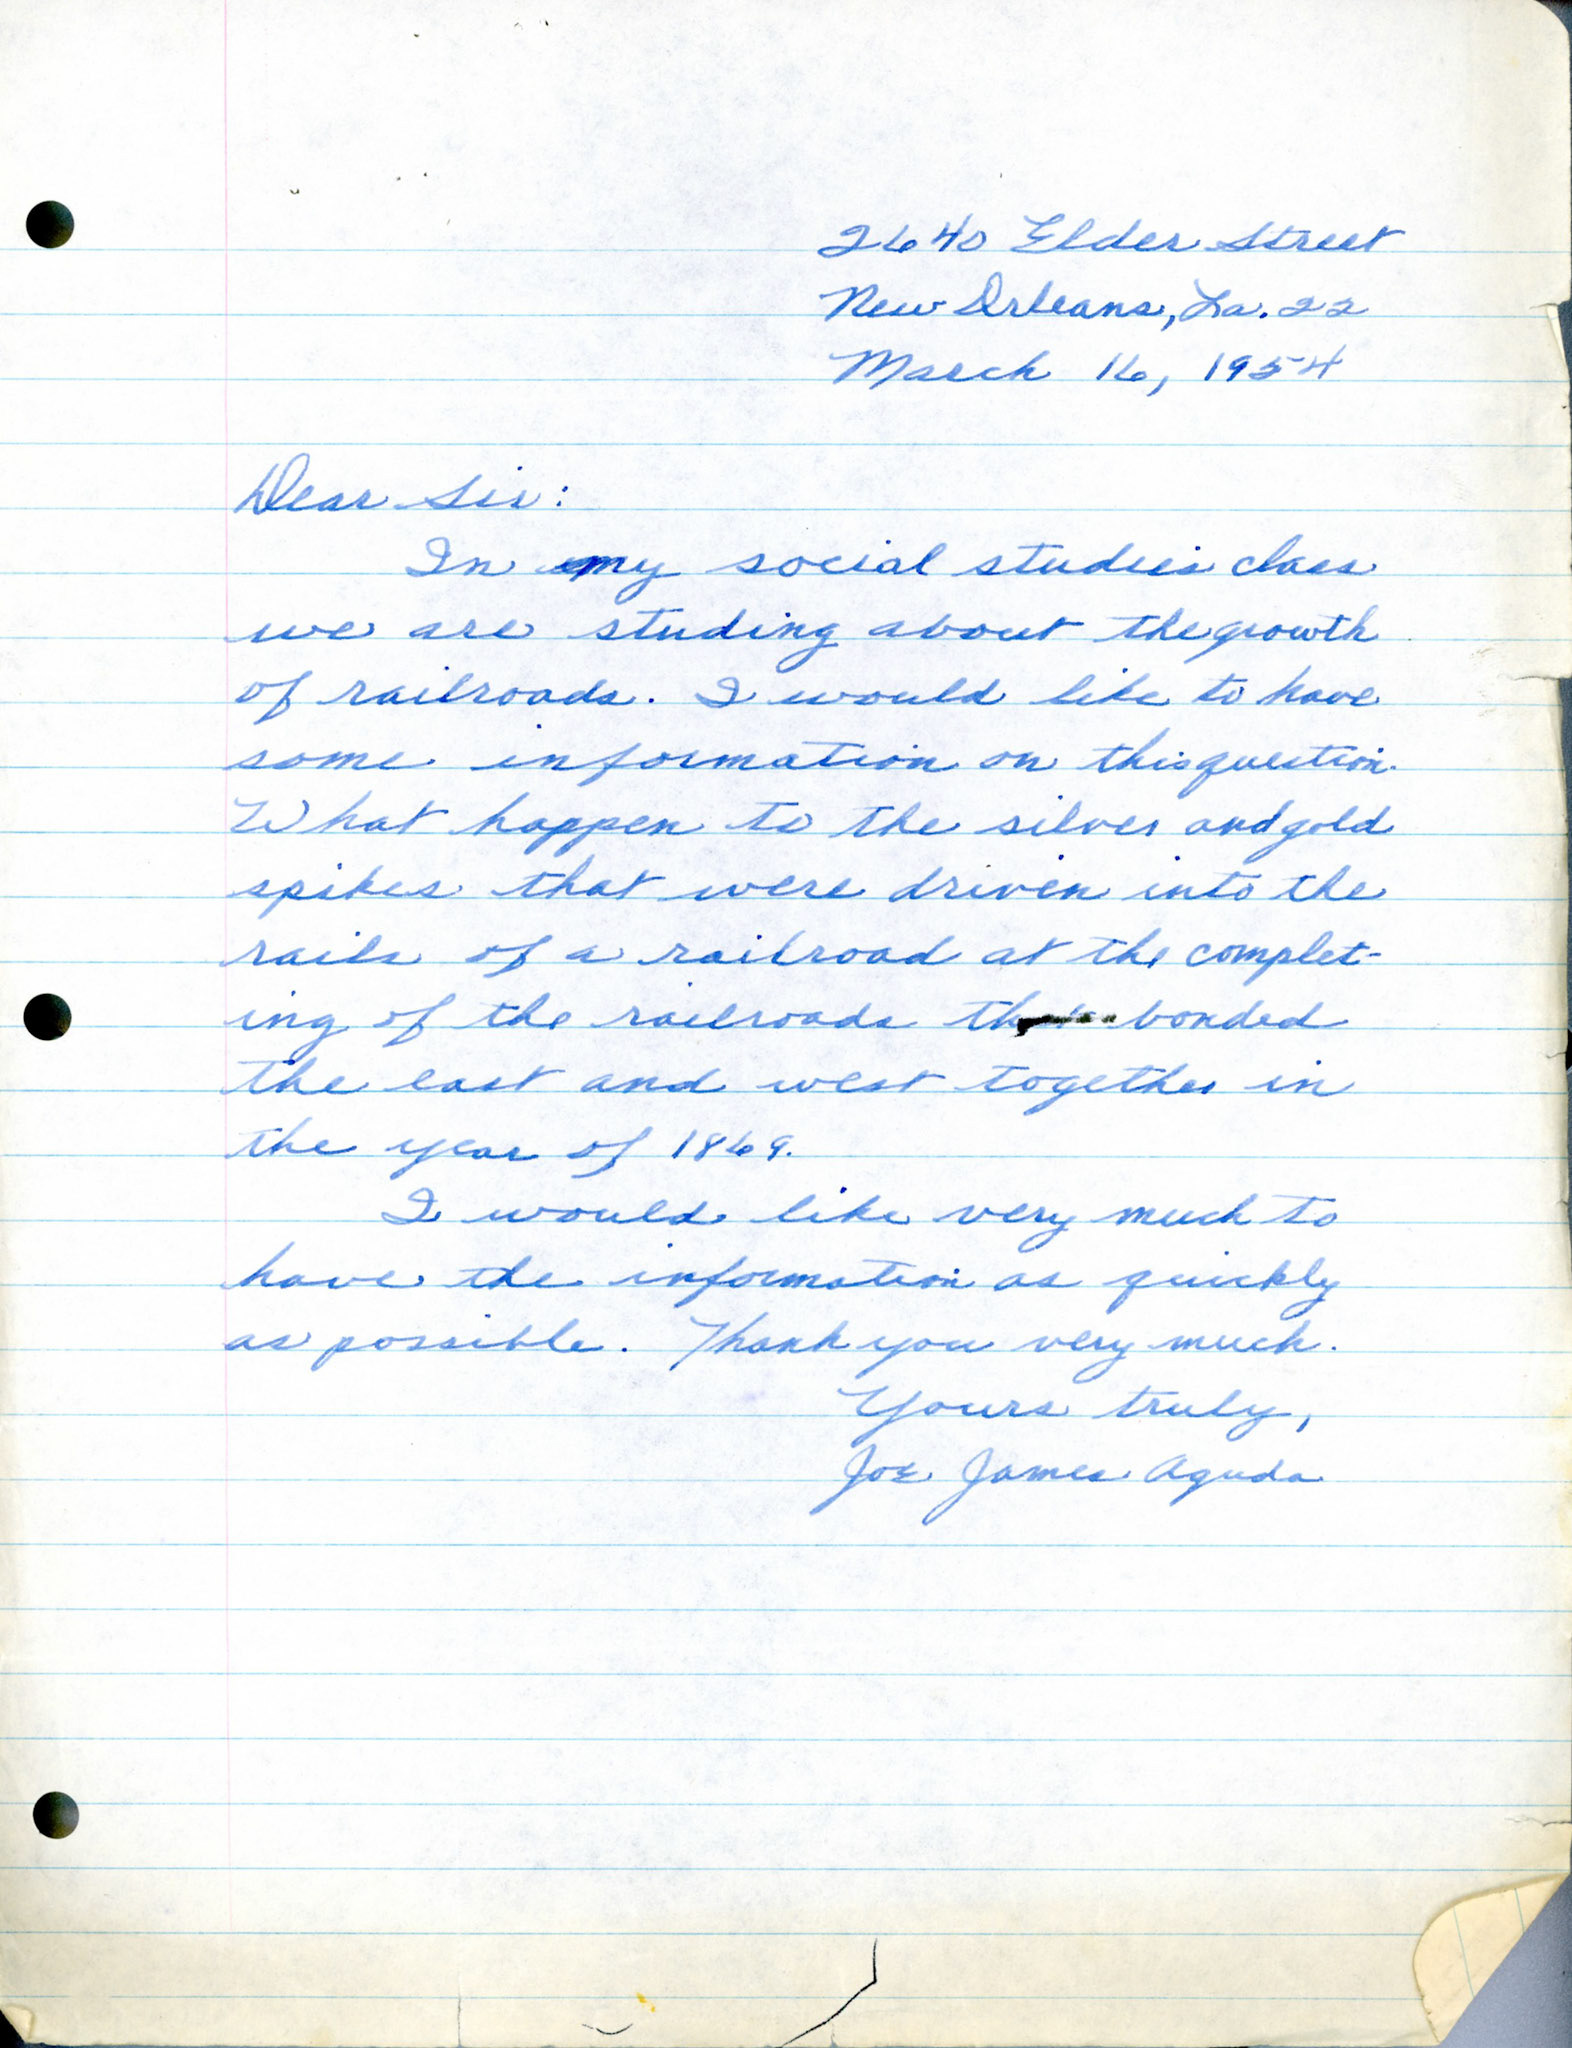 2640 Elder Street
New Orleans, La. 22
March 16, 1954
Dear Sir:
In my social studies class
we are studing about the growth
of railroads. I would like to have
some information on this question.
What happen to the silver and gold
spikes that were driven into the
rails of a railroad at the complet-
ing of the railroads bonded
the east and west together in
the year of 1869.
I would like very much to
have the information as quickly
as possible. Thank you very much.
Yours truly,
Joe James Aguda